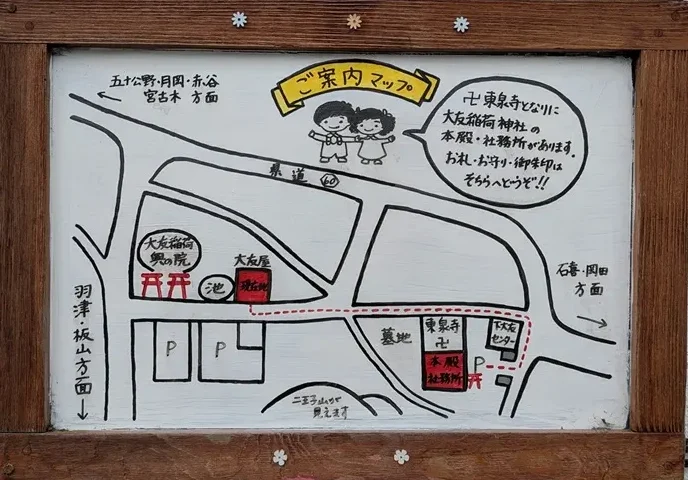 五十公野・月岡・赤谷
宮古木 方面
ご案内マップ
卍東泉寺となりに
大友稲荷神社の
本殿・社務所があります。
お札・お守り・御朱印は
そちらへどうぞ!!
県道60
石喜・岡田
方面
大友稲荷
奥の院
池
大友屋
現在地
羽津・板山方面
P
P
墓地
東泉寺
卍
本殿
社務所
P
下大友
センター
二王子山が
見えます